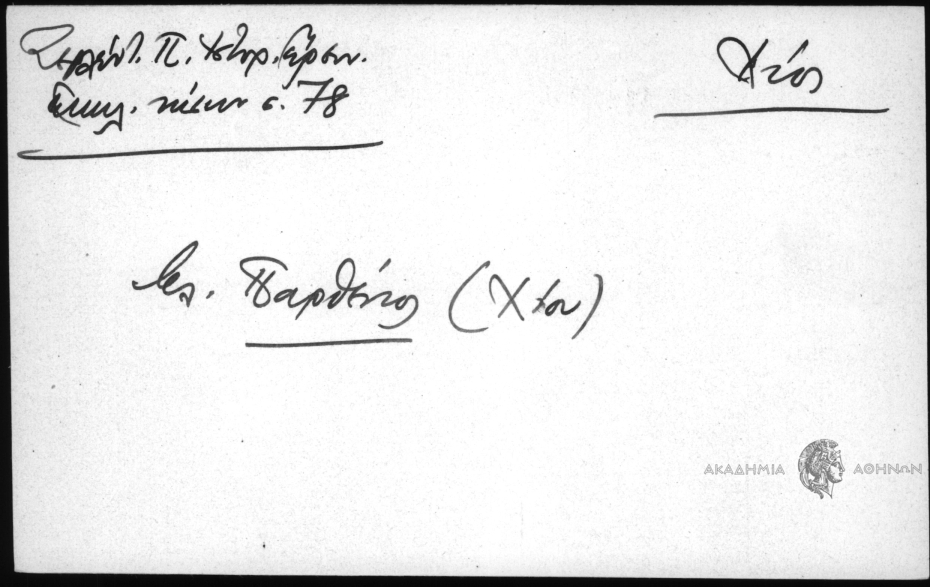 Ζερλέντ. Π. Ἱστορ. Ἔρευν.
Ἐκκλ. νήσων σ. 78
Χίος
Παρθένιος (Χίου)
ΑΚΑΔΗΜΙΑ ΑΘΗΝΩΝ